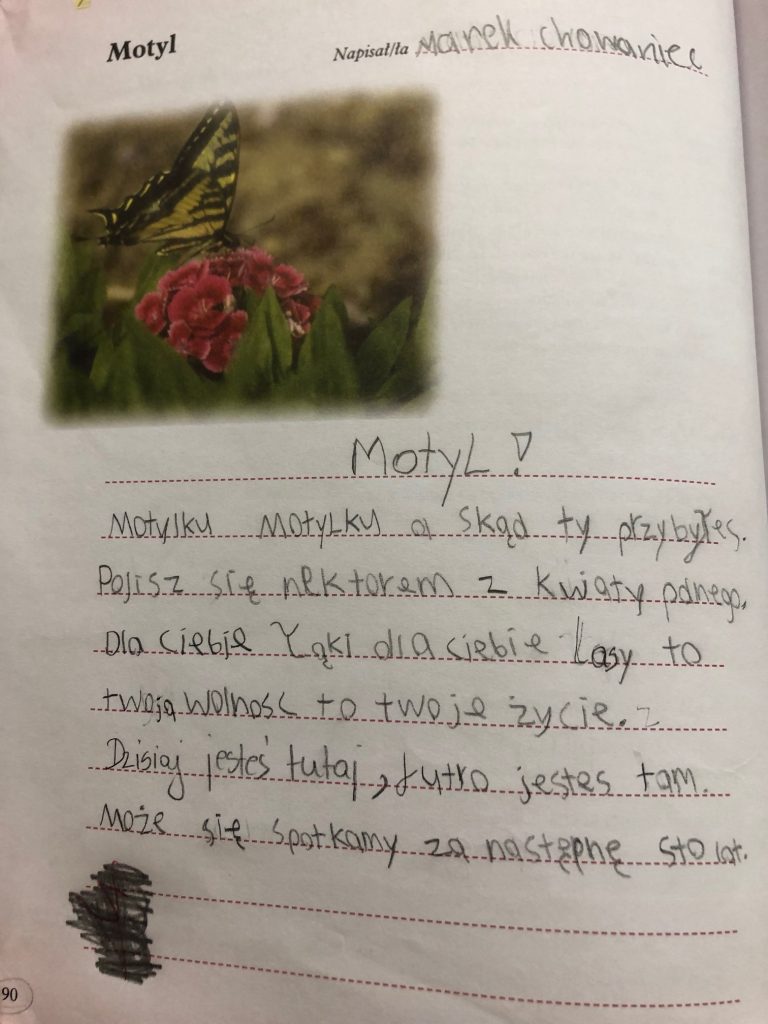 Motyl
Napisał/ła Manek chowaniec
Motyl!
Motylku Motylku a skąd ty przybyłeś.
Pojisz się nektorem z kwiaty pdnego,
Dla ciebie Łąki dla ciebie Lasy to
twoja wolnosc to twoje życie. z
Dzisiaj jesteś tutaj, Jutro jestes tam.
Może się spotkamy za następnę sto lat.
90